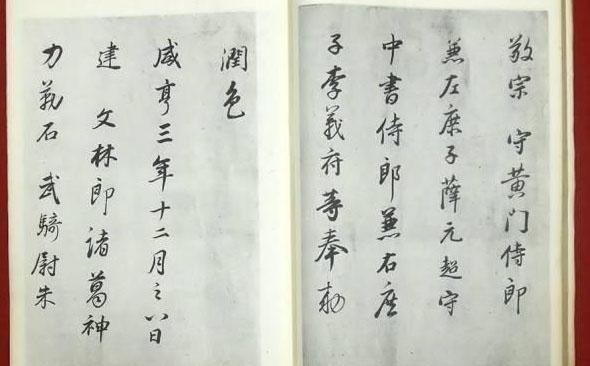 敬宗 守黄门侍郎
兼左庶子薛元超守
中書侍郎兼右庶
子李義府等奉勅
潤色
咸亨三年十二月之八日
建 文林郎諸葛神
力蓺石 武騎尉朱